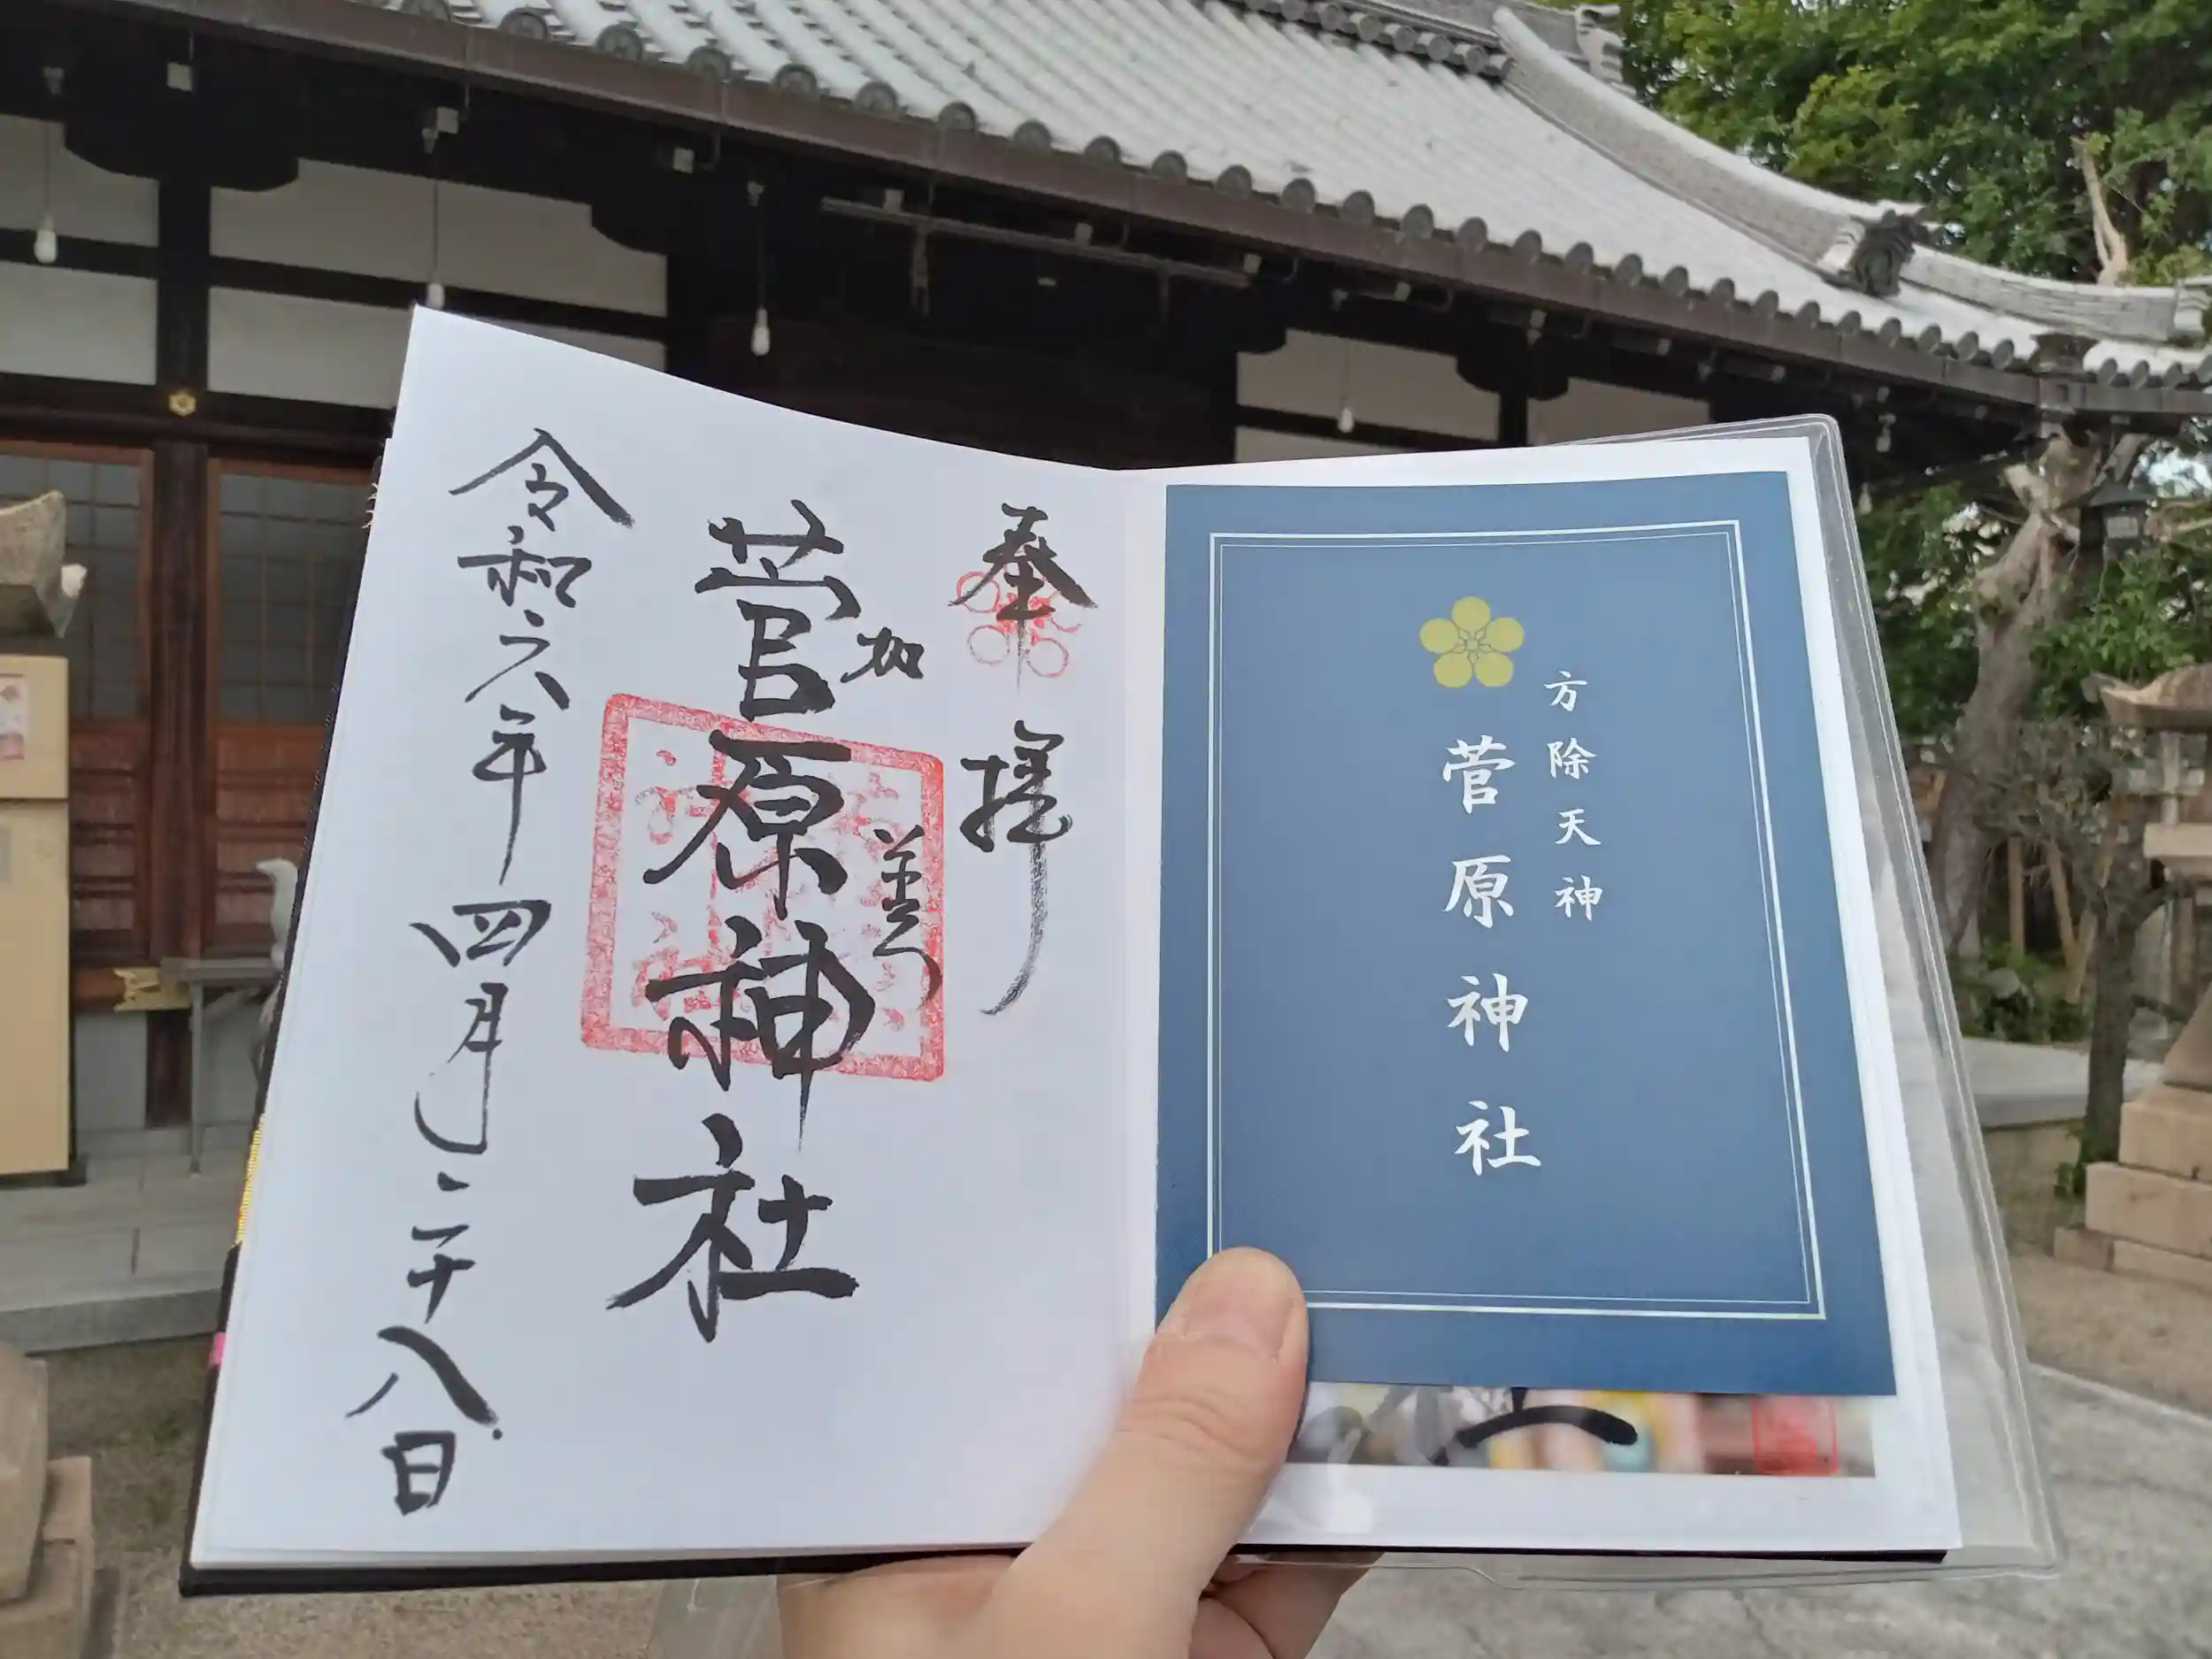 方除天神
菅原神社
奉拝
加美
菅原神社
令和六年四月二十八日